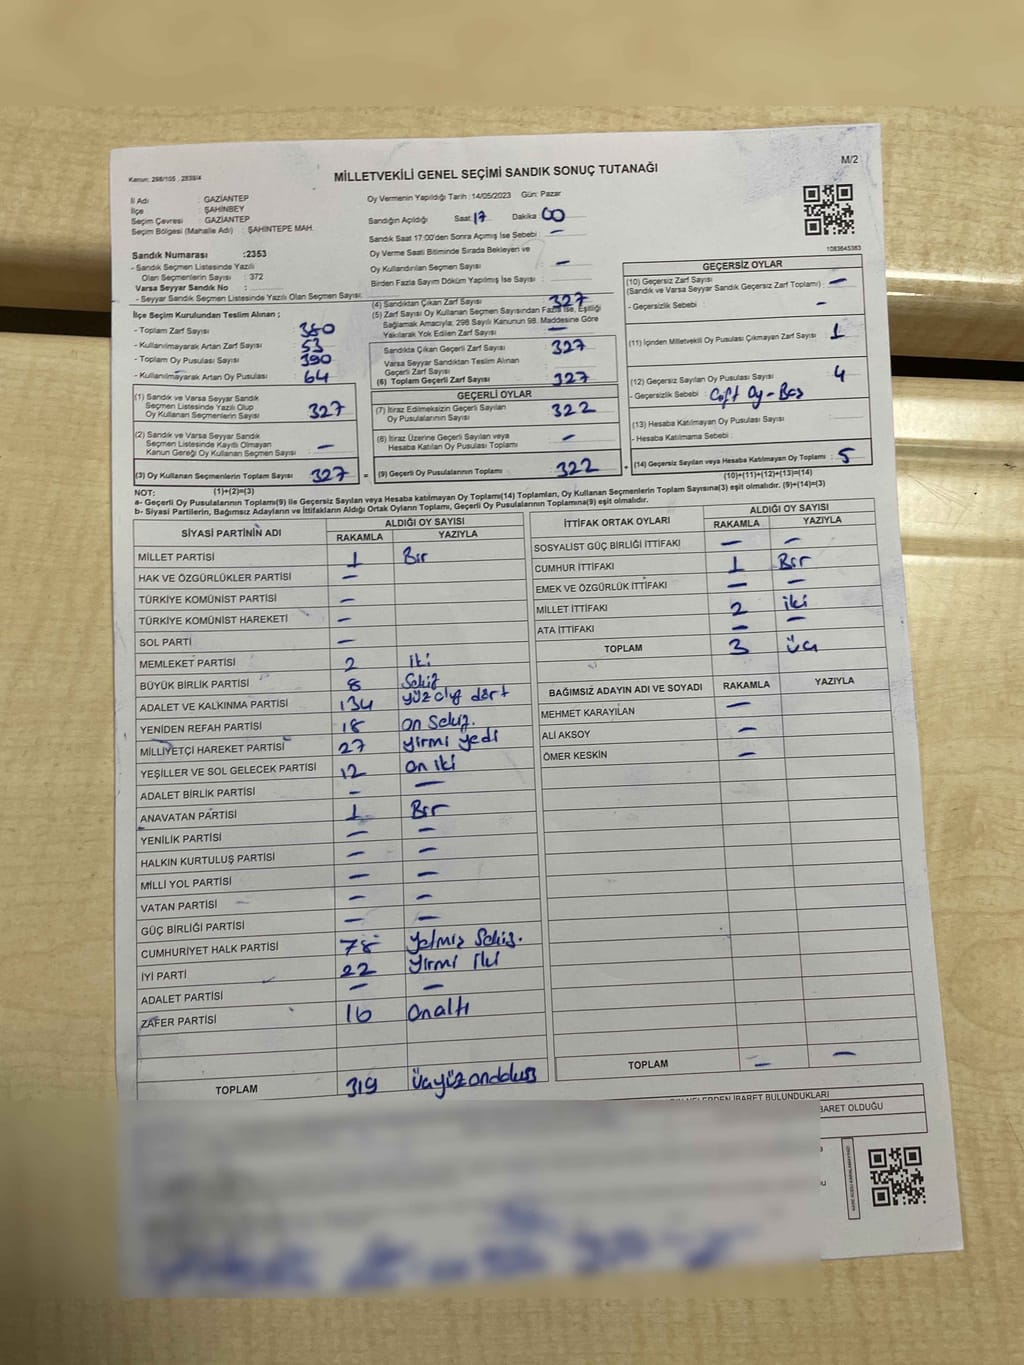 Kanun: 298/105 , 2839/4
MİLLETVEKİLİ GENEL SEÇİMİ SANDIK SONUÇ TUTANAĞI
M/2
İl Adı : GAZİANTEP
İlçe : ŞAHİNBEY
Seçim Çevresi : GAZİANTEP
Seçim Bölgesi (Mahalle Adı) : ŞAHİNTEPE MAH.
Sandık Numarası :2353
- Sandık Seçmen Listesinde Yazılı
Olan Seçmenlerin Sayısı : 372
Varsa Seyyar Sandık No :
- Seyyar Sandık Seçmen Listesinde Yazılı Olan Seçmen Sayısı:
Oy Vermenin Yapıldığı Tarih :14/05/2023 Gün: Pazar
Sandığın Açıldığı Saat 17 Dakika 00
Sandık Saat 17:00'den Sonra Açımış İse Sebebi : —
Oy Verme Saati Bitiminde Sırada Bekleyen ve
Oy Kullandırılan Seçmen Sayısı : —
Birden Fazla Sayım Döküm Yapılmış İse Sayısı :
1083645383
İlçe Seçim Kurulundan Teslim Alınan ;
- Toplam Zarf Sayısı : 380
- Kullanılmayarak Artan Zarf Sayısı : 53
- Toplam Oy Pusulası Sayısı : 390
- Kullanılmayarak Artan Oy Pusulası : 64
(1) Sandık ve Varsa Seyyar Sandık
Seçmen Listesinde Yazılı Olup
Oy Kullanan Seçmenlerin Sayısı : 327
(2) Sandık ve Varsa Seyyar Sandık
Seçmen Listesinde Kayıtlı Olmayan
Kanun Gereği Oy Kullanan Seçmen Sayısı : —
(3) Oy Kullanan Seçmenlerin Toplam Sayısı : 327 =
(1)+(2)=(3)
(4) Sandıktan Çıkan Zarf Sayısı : 327
(5) Zarf Sayısı Oy Kullanan Seçmen Sayısından Fazla İse, Eşitliği
Sağlamak Amacıyla; 298 Sayılı Kanunun 98. Maddesine Göre
Yakılarak Yok Edilen Zarf Sayısı : —
Sandıkta Çıkan Geçerli Zarf Sayısı : 327
Varsa Seyyar Sandıktan Teslim Alınan
Geçerli Zarf Sayısı :
(6) Toplam Geçerli Zarf Sayısı : 327
GEÇERLİ OYLAR
(7) İtiraz Edilmeksizin Geçerli Sayılan
Oy Pusulalarının Sayısı : 322
(8) İtiraz Üzerine Geçerli Sayılan veya
Hesaba Katılan Oy Pusulası Toplamı : —
(9) Geçerli Oy Pusulalarının Toplamı : 322 +
GEÇERSİZ OYLAR
(10) Geçersiz Zarf Sayısı
(Sandık ve Varsa Seyyar Sandık Geçersiz Zarf Toplamı) : —
- Geçersizlik Sebebi : —
(11) İçinden Milletvekili Oy Pusulası Çıkmayan Zarf Sayısı : 1
(12) Geçersiz Sayılan Oy Pusulası Sayısı : 4
- Geçersizlik Sebebi : Çift Oy - Boş
(13) Hesaba Katılmayan Oy Pusulası Sayısı :
- Hesaba Katılmama Sebebi :
(14) Geçersiz Sayılan veya Hesaba Katılmayan Oy Toplamı : 5
(10)+(11)+(12)+(13)=(14)
NOT:
a- Geçerli Oy Pusulalarının Toplamı(9) ile Geçersiz Sayılan veya Hesaba katılmayan Oy Toplamı(14) Toplamları, Oy Kullanan Seçmenlerin Toplam Sayısına(3) eşit olmalıdır. (9)+(14)=(3)
b- Siyasi Partilerin, Bağımsız Adayların ve İttifakların Aldığı Ortak Oyların Toplamı, Geçerli Oy Pusulalarının Toplamına(9) eşit olmalıdır.
SİYASİ PARTİNİN ADI ALDIĞI OY SAYISI
RAKAMLA YAZIYLA
MİLLET PARTİSİ 1 Bir
HAK VE ÖZGÜRLÜKLER PARTİSİ —
TÜRKİYE KOMÜNİST PARTİSİ —
TÜRKİYE KOMÜNİST HAREKETİ —
SOL PARTİ —
MEMLEKET PARTİSİ 2 iki
BÜYÜK BİRLİK PARTİSİ 8 Sekiz
ADALET VE KALKINMA PARTİSİ 134 yüz otuz dört
YENİDEN REFAH PARTİSİ 18 on sekiz.
MİLLİYETÇİ HAREKET PARTİSİ 27 yirmi yedi
YEŞİLLER VE SOL GELECEK PARTİSİ 12 on iki
ADALET BİRLİK PARTİSİ — —
ANAVATAN PARTİSİ 1 Bir
YENİLİK PARTİSİ — —
HALKIN KURTULUŞ PARTİSİ — —
MİLLİ YOL PARTİSİ — —
VATAN PARTİSİ — —
GÜÇ BİRLİĞİ PARTİSİ — —
CUMHURİYET HALK PARTİSİ 78 yetmiş Sekiz.
İYİ PARTİ 22 yirmi iki
ADALET PARTİSİ — —
ZAFER PARTİSİ 16 onaltı
TOPLAM 319 üçyüzondokuz
İTTİFAK ORTAK OYLARI ALDIĞI OY SAYISI
RAKAMLA YAZIYLA
SOSYALİST GÜÇ BİRLİĞİ İTTİFAKI — —
CUMHUR İTTİFAKI 1 Bir
EMEK VE ÖZGÜRLÜK İTTİFAKI — —
MİLLET İTTİFAKI 2 iki
ATA İTTİFAKI — —
TOPLAM 3 üç
BAĞIMSIZ ADAYIN ADI VE SOYADI RAKAMLA YAZIYLA
MEHMET KARAYILAN —
ALİ AKSOY —
ÖMER KESKİN —
TOPLAM — —
NELERDEN İBARET BULUNDUKLARI
BARET OLDUĞU